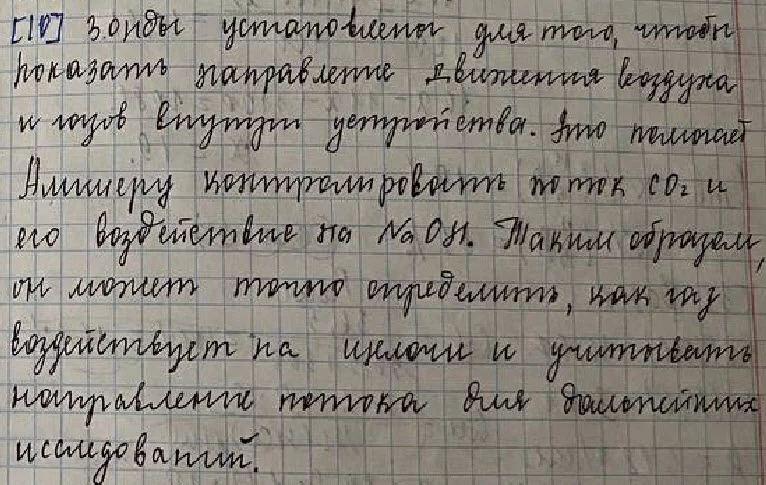 [10] Зонды установлены для того, чтобы
показать направление движения воздуха
и газов внутри устройства. Это помогает
Амперу контролировать поток CO₂ и
его воздействие на NaOH. Таким образом,
он может точно определить, как газ
воздействует на щелочи и учитывать
направление потока для дальнейших
исследований.